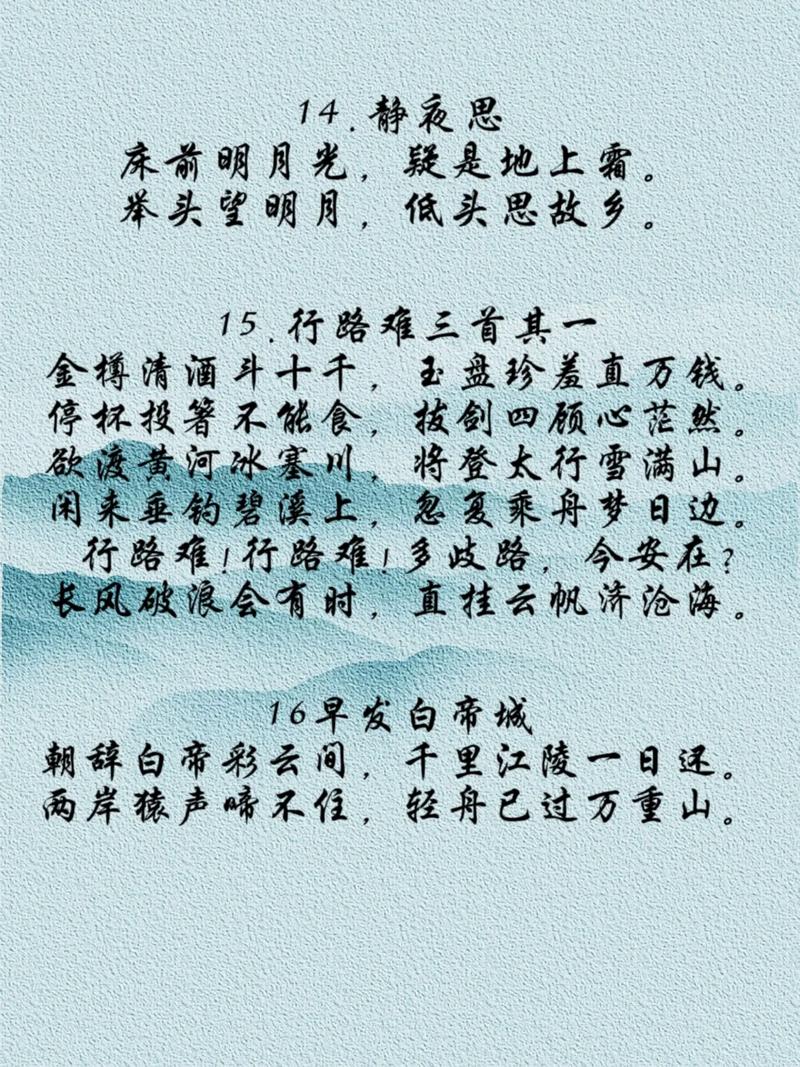 14.静夜思
床前明月光，疑是地上霜。
举头望明月，低头思故乡。
15.行路难三首其一
金樽清酒斗十千，玉盘珍羞直万钱。
停杯投箸不能食，拔剑四顾心茫然。
欲渡黄河冰塞川，将登太行雪满山。
闲来垂钓碧溪上，忽复乘舟梦日边。
行路难!行路难!多歧路，今安在?
长风破浪会有时，直挂云帆济沧海。
16早发白帝城
朝辞白帝彩云间，千里江陵一日还。
两岸猿声啼不住，轻舟已过万重山。